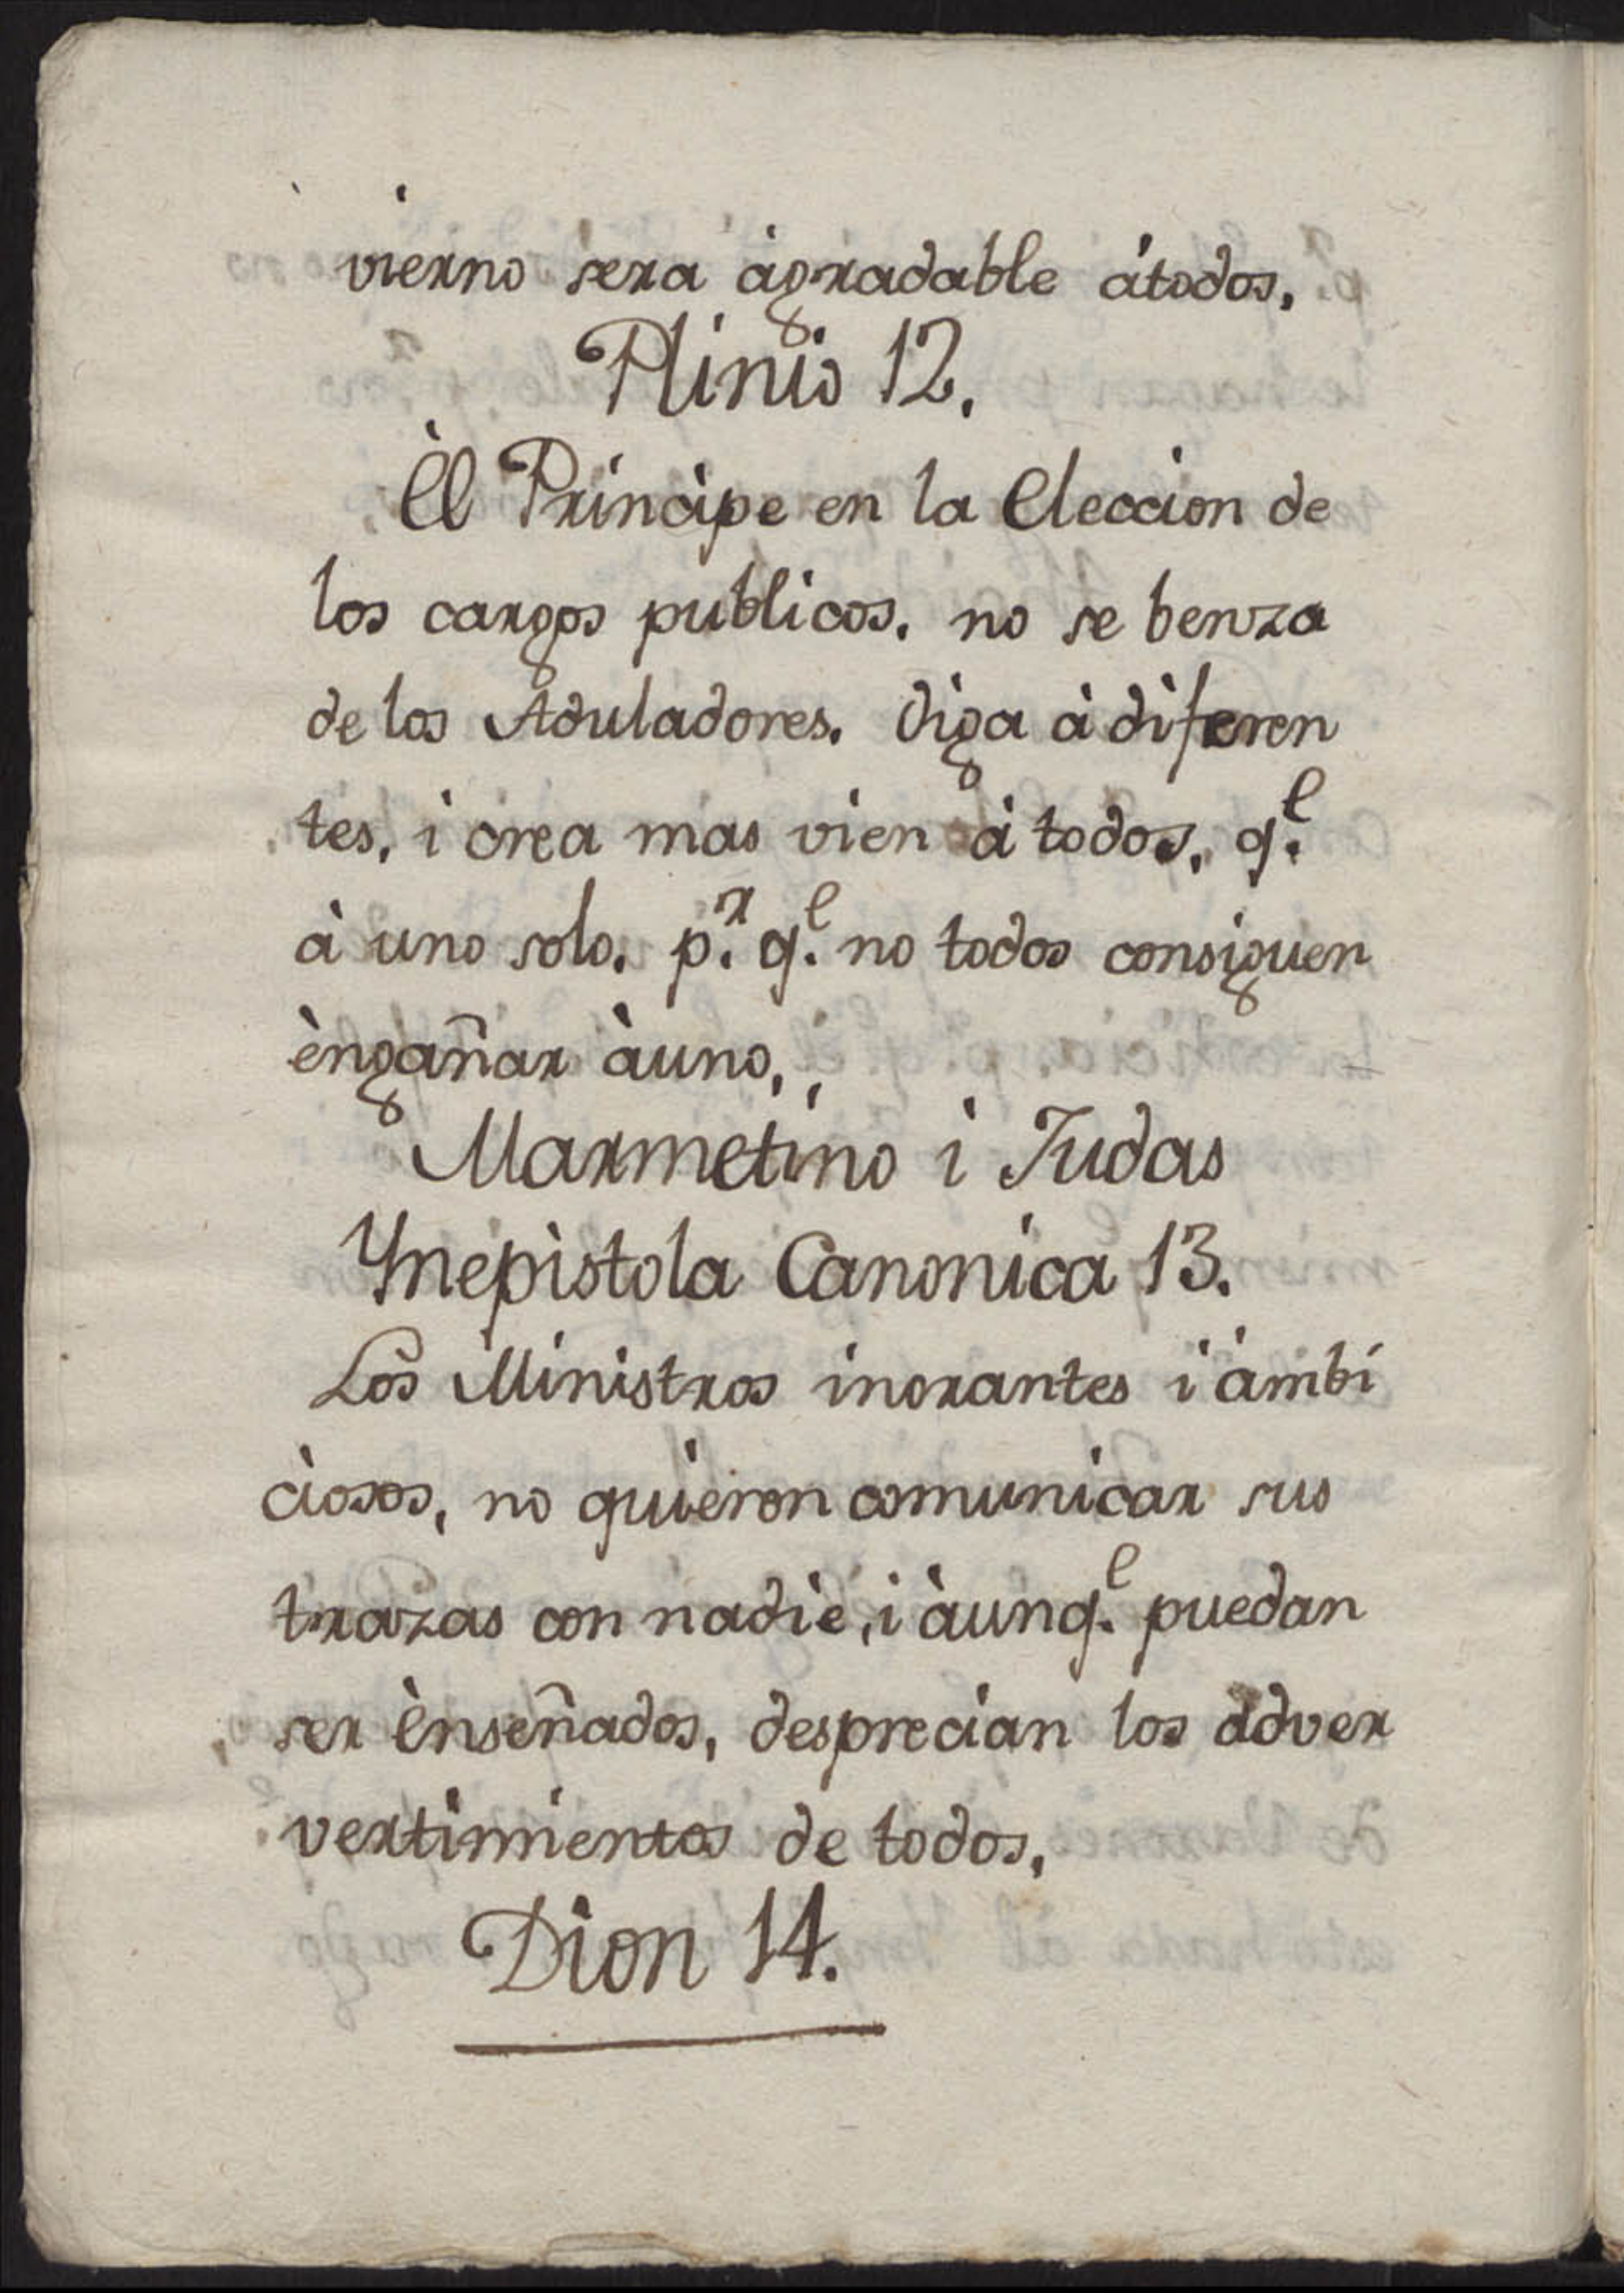 vierno sera àgradable átodos,
Plinio 12.
Èl Principe en la Eleccion de
los cargos publicos. no se benza
de los Aduladores. Oiga à diferen
tes, i crea mas vien à todos, q.e
à uno solo. p.r q.e no todos consiguen
èngañar àuno,,
Marmetino i Judas
Ynepistola Canonica 13.
Los Ministros inorantes i àmbi
ciosos, no quieren comunicar sus
trazas con nadie, i àunq.e puedan
ser ènseñados, desprecian los adver
vertimientos de todos,
Dion 14.